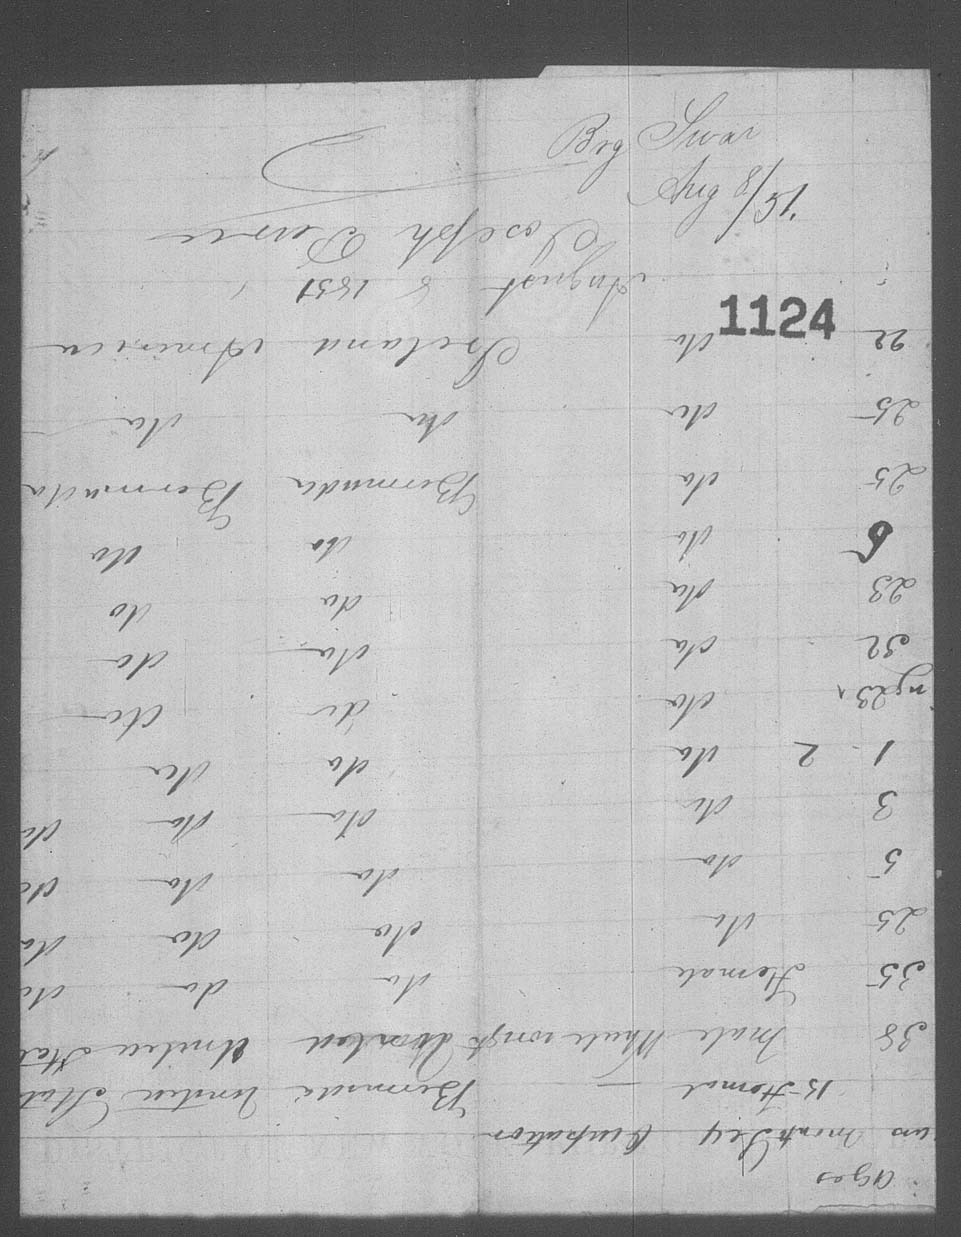 Brig Swan
Aug 8/51.
1124
ages
Month Sex Occupation
15 Femal — Bermuda United Stat
38 Male United Stat
35 Female do do do
25 do do do do
5 do do do do
3 do do do do
1 2 do do do
23 do do do
32 do do do
23 do do do
6 do do do
25 do Bermuda Bermuda
25 do do do
22 do Ireland America
August 8 1851
Joseph